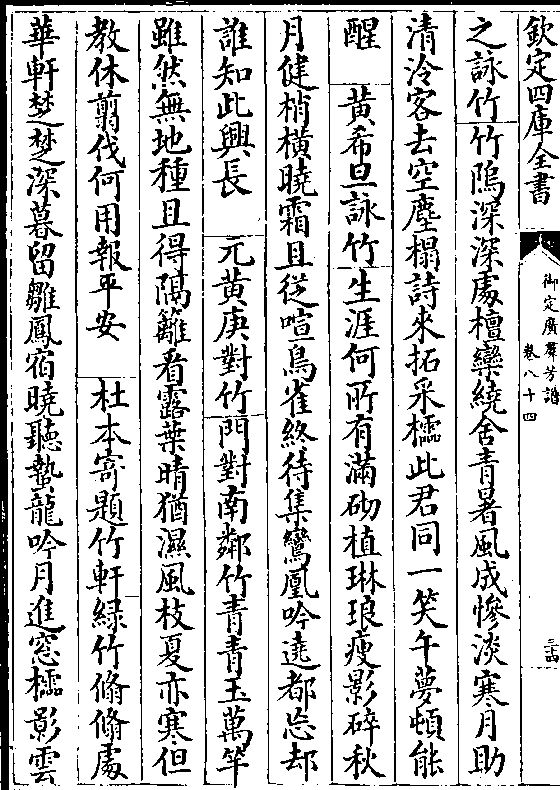 欽定四庫全書
御定廣羣芳譜
卷八十四
三十四
之詠竹竹隖深深處檀欒繞舍青暑風成慘淡寒月助
清泠客去空塵榻詩來拓采櫺此君同一笑午夢頓能
醒　黄希旦詠竹生涯何所有滿砌植琳琅瘦影碎秋
月健梢橫曉霜且從喧鳥雀終待集鸞凰吟遶都忘却
誰知此興長　元黄庚對竹門對南鄰竹青青玉萬竿
雖然無地種且得隔籬看露葉晴猶濕風枝夏亦寒但
教休翦伐何用報平安　杜本寄題竹軒緑竹脩脩處
華軒楚楚深暮留雛鳳宿曉聽蟄龍吟月進窓櫺影雲